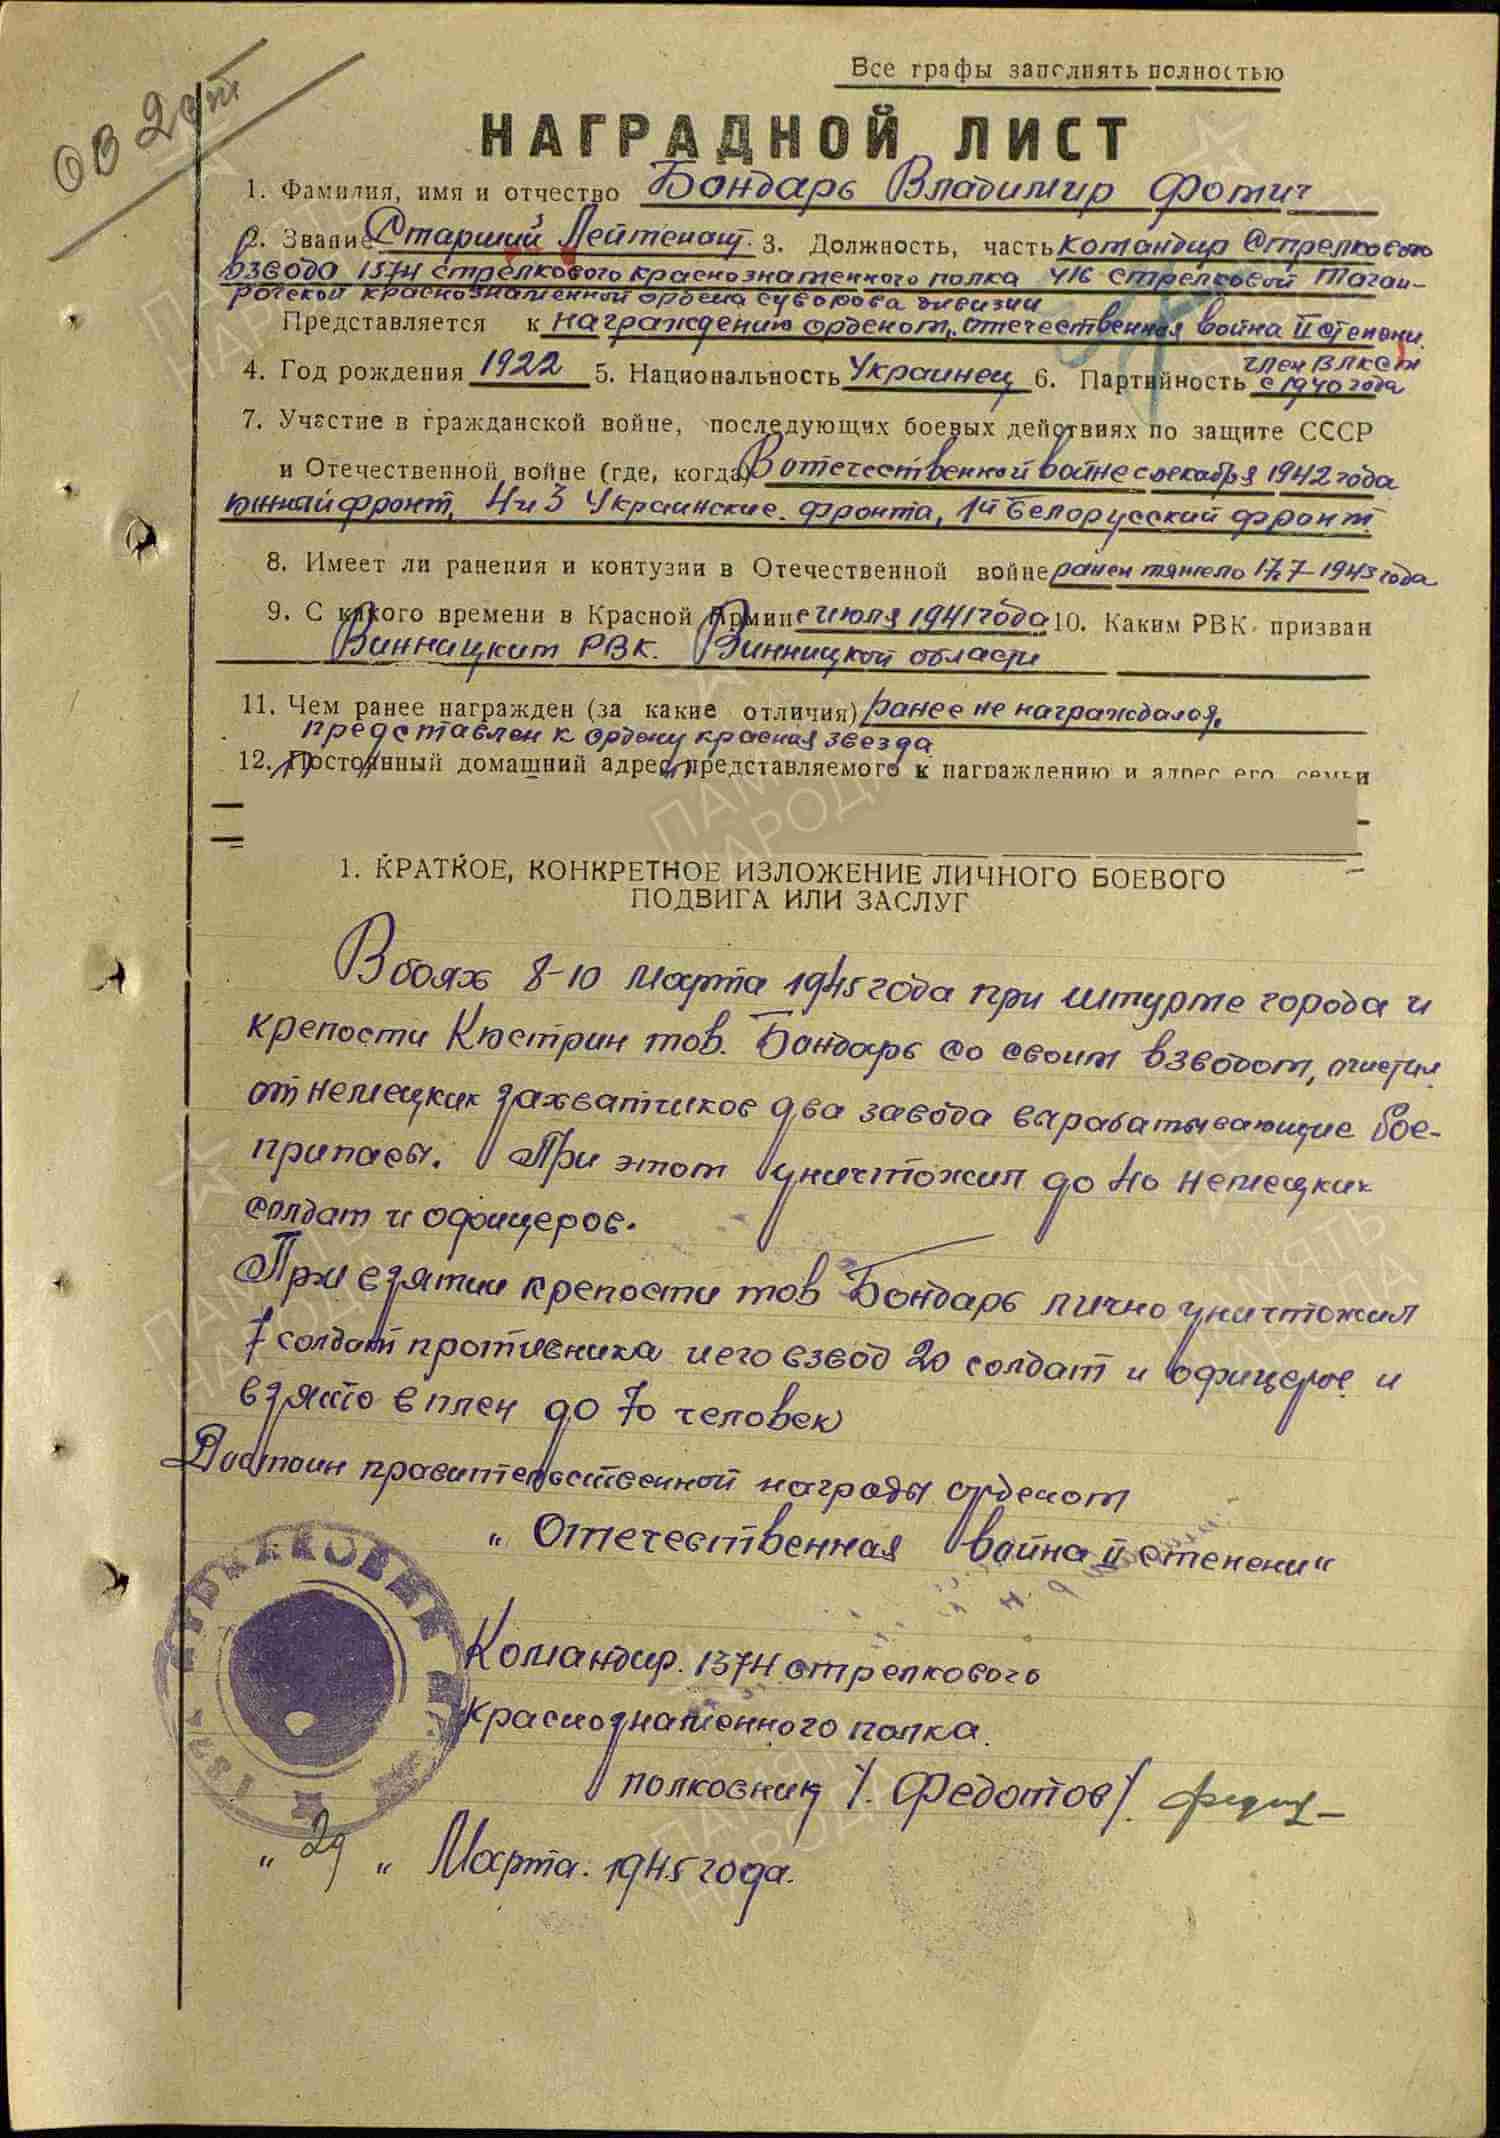 ОВ 2 ст
Все графы заполнять полностью
НАГРАДНОЙ ЛИСТ
1. Фамилия, имя и отчество Бондарь Владимир Фотич
2. Звание Старший Лейтенант. 3. Должность, часть командир стрелкового
взвода 1374 стрелкового краснознаменного полка 416 стрелковой Таган-
рогской краснознаменной ордена суворова дивизии
Представляется к награждению орденом „отечественная война II степени
4. Год рождения 1922 5. Национальность Украинец 6. Партийность член ВЛКСМ
с 1940 года
7. Участие в гражданской войне, последующих боевых действиях по защите СССР
и Отечественной войне (где, когда) В отечественной войне с декабря 1942 года
Южный фронт, 4 и 3 Украинские фронта, 1й Белорусский фронт.
8. Имеет ли ранения и контузии в Отечественной войне ранен тяжело 17.7-1943 года
9. С какого времени в Красной Армии с июля 1941 года 10. Каким РВК призван
Винницким РВК. Винницкой области
11. Чем ранее награжден (за какие отличия) ранее не награждался,
представлен к ордену красная звезда
12. Постоянный домашний адрес представляемого к награждению и адрес его семьи
1. КРАТКОЕ, КОНКРЕТНОЕ ИЗЛОЖЕНИЕ ЛИЧНОГО БОЕВОГО
ПОДВИГА ИЛИ ЗАСЛУГ
В боях 8-10 Марта 1945 года при штурме города и
крепости Кюстрин тов. Бондарь со своим взводом, очистил
от немецких захватчиков два завода варабатывающие бое-
припасы. При этом уничтожил до 40 немецких
солдат и офицеров.
При взятии крепости тов Бондарь лично уничтожил
7 солдат противника и его взвод 20 солдат и офицеров и
взято в плен до 70 человек
Достоин правительственной награды орденом
„Отечественная война II степени“
Командир. 1374 стрелкового
краснознаменного полка.
полковник /. Федотов/.
„29“ Марта. 1945 года.
ПАМЯТЬ НАРОДА